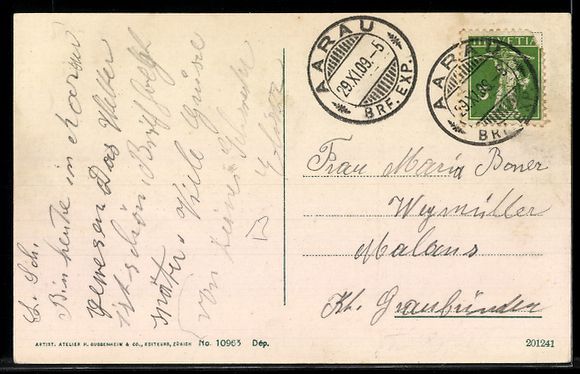 L. Sch.
Bin heute in Aarau
gewesen Das Wetter
ist schön. Brief folgt
später. Viele Grüsse
von deiner Schw.
AARAU
29.XI.09.-5
BRF. EXP.
HELVETIA
AARAU
29.XI.09
BRF.
Frau Maria Boner
Weymüller
Malans
Kt. Graubünden
ARTIST. ATELIER H. GUGGENHEIM & CO., EDITEURS, ZÜRICH No. 10965 Dép.
201241